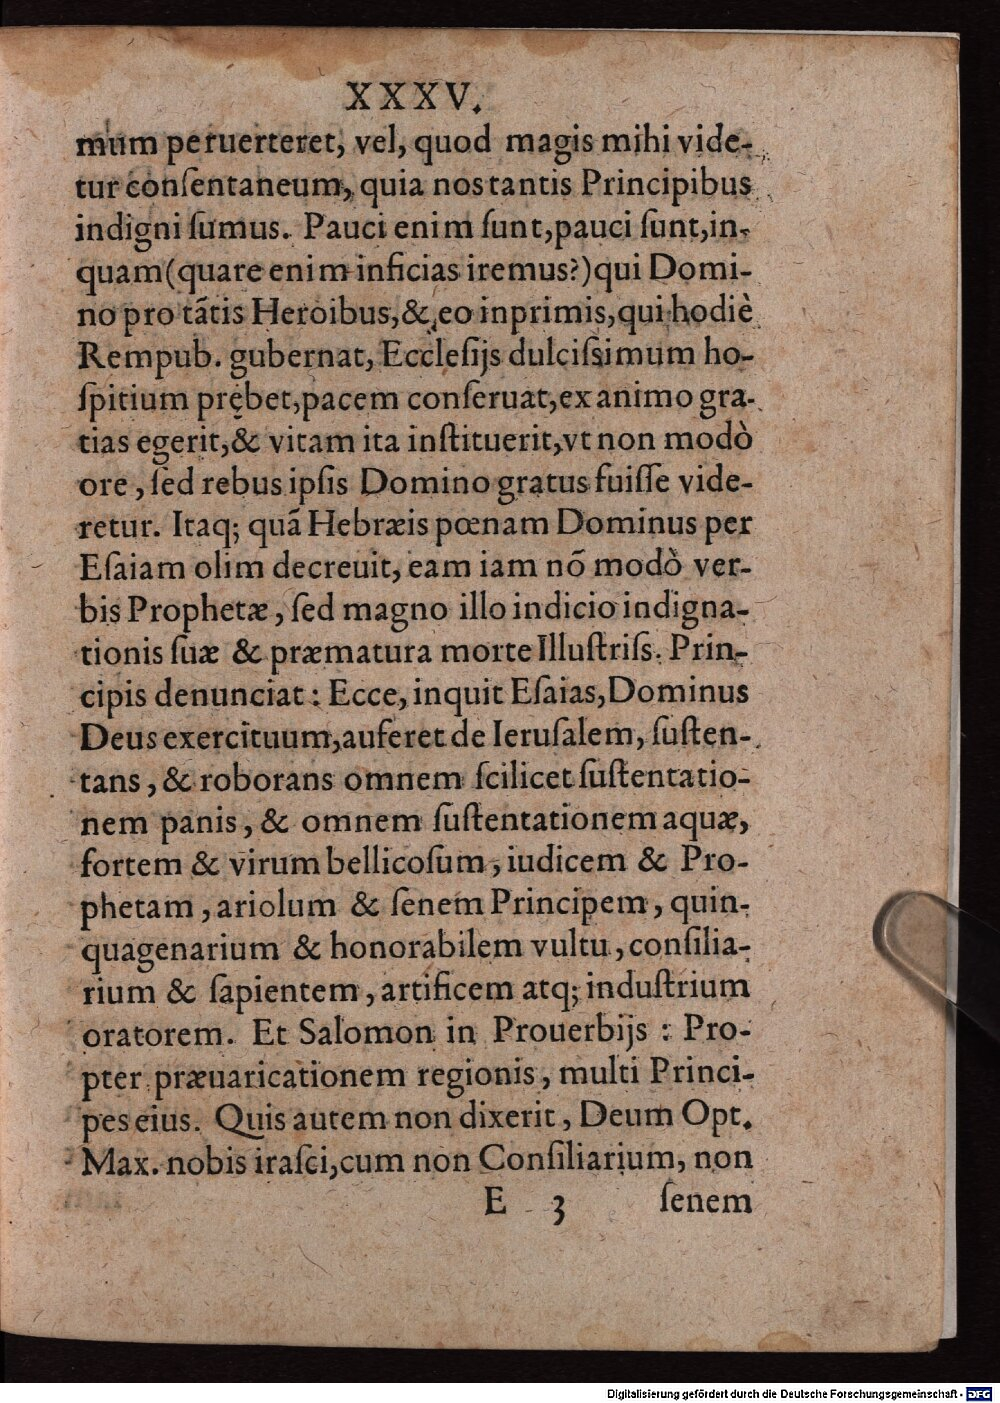 XXXV.
mum peruerteret, vel, quod magis mihi vide-
tur conſentaneum, quia nos tantis Principibus
indigni ſumus. Pauci enim ſunt, pauci ſunt, in-
quam (quare enim inficias iremus?) qui Domi-
no pro tãtis Heroibus, & eo inprimis, qui hodiè
Rempub. gubernat, Eccleſijs dulciſsimum ho-
ſpitium prębet, pacem conſeruat, ex animo gra-
tias egerit, & vitam ita inſtituerit, vt non modò
ore, ſed rebus ipſis Domino gratus fuiſſe vide-
retur. Itaq; quã Hebræis pœnam Dominus per
Eſaiam olim decreuit, eam iam nõ modò ver-
bis Prophetæ, ſed magno illo indicio indigna-
tionis ſuæ & præmatura morte Illuſtriſs. Prin-
cipis denunciat: Ecce, inquit Eſaias, Dominus
Deus exercituum, auferet de Ieruſalem, ſuſten-
tans, & roborans omnem ſcilicet ſuſtentatio-
nem panis, & omnem ſuſtentationem aquæ,
fortem & virum bellicoſum, iudicem & Pro-
phetam, ariolum & ſenem Principem, quin-
quagenarium & honorabilem vultu, conſilia-
rium & ſapientem, artificem atq; induſtrium
oratorem. Et Salomon in Prouerbijs: Pro-
pter præuaricationem regionis, multi Princi-
pes eius. Quis autem non dixerit, Deum Opt.
Max. nobis iraſci, cum non Conſiliarium, non
E 3 ſenem
Digitalisierung gefördert durch die Deutsche Forschungsgemeinschaft - DFG